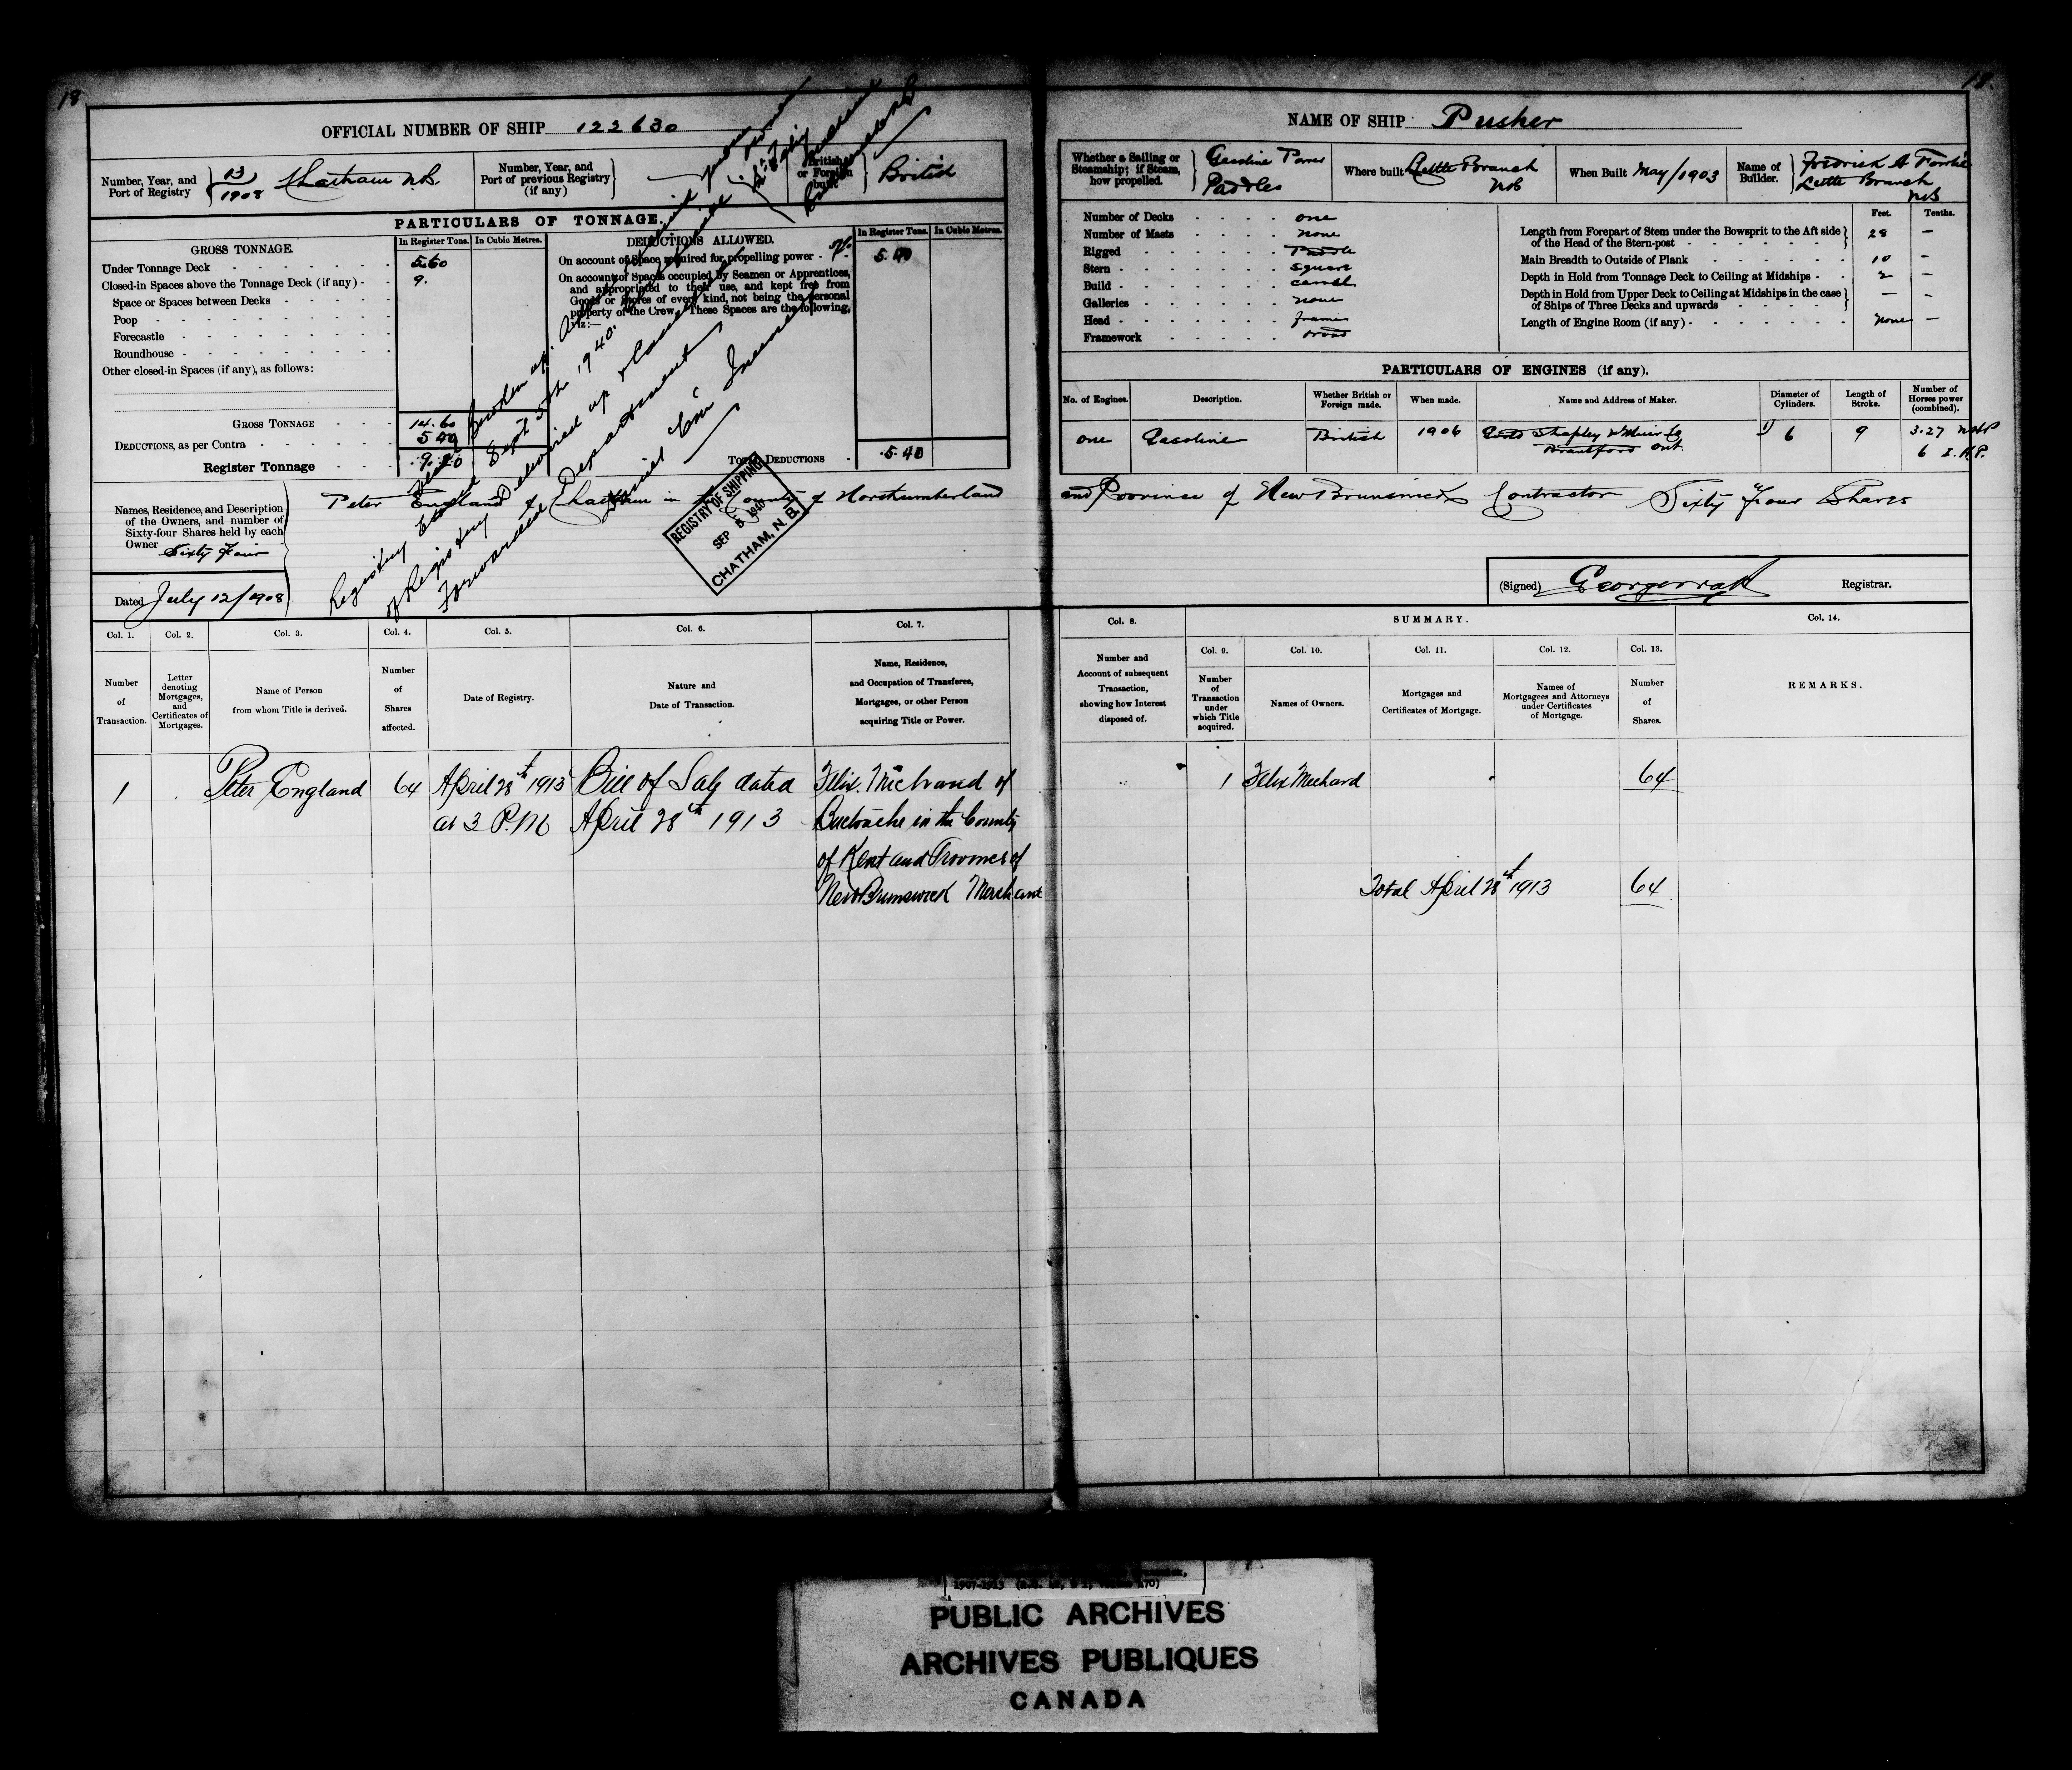 18
18.
OFFICIAL NUMBER OF SHIP 122630
Number, Year, and Port of Registry } 13/1908 Chatham N.B.
Number, Year, and Port of previous Registry (if any) }
British or Foreign built } British
PARTICULARS OF TONNAGE.
GROSS TONNAGE.
In Register Tons. In Cubic Metres.
Under Tonnage Deck 5.60
Closed-in Spaces above the Tonnage Deck (if any) 9.
Space or Spaces between Decks
Poop
Forecastle
Roundhouse
Other closed-in Spaces (if any), as follows:
GROSS TONNAGE 14.60
DEDUCTIONS, as per Contra 5 40
Register Tonnage 9.20
DEDUCTIONS ALLOWED.
In Register Tons. In Cubic Metres.
On account of Space required for propelling power 5.40
On account of Spaces occupied by Seamen or Apprentices,
and appropriated to their use, and kept free from
Goods or Stores of every kind, not being the personal
property of the Crew. These Spaces are the following,
viz:—
TOTAL DEDUCTIONS 5.40
Names, Residence, and Description
of the Owners, and number of
Sixty-four Shares held by each
Owner Sixty Four
Peter England of Chatham in the County of Northumberland
Dated July 12/1908
Registry
Sept 5th 1940.
of Registry
Forwarded Department
REGISTRY OF SHIPPING
SEP 5 1940
CHATHAM, N. B.
NAME OF SHIP Pusher
Whether a Sailing or Steamship; if Steam, how propelled. } Gasoline Power Paddles
Where built Little Branch NB
When Built May/1903
Name of Builder. } Fredrick A
Little Branch
NB
Number of Decks one
Number of Masts none
Rigged Paddle
Stern square
Build carvel
Galleries none
Head frames
Framework wood
Feet. Tenths.
Length from Forepart of Stem under the Bowsprit to the Aft side
of the Head of the Stern-post } 28 —
Main Breadth to Outside of Plank 10 —
Depth in Hold from Tonnage Deck to Ceiling at Midships 2 —
Depth in Hold from Upper Deck to Ceiling at Midships in the case
of Ships of Three Decks and upwards } — —
Length of Engine Room (if any) none —
PARTICULARS OF ENGINES (if any).
No. of Engines. Description. Whether British or Foreign made. When made. Name and Address of Maker. Diameter of Cylinders. Length of Stroke. Number of Horses power (combined).
one Gasoline British 1906 Goold Shapley & Muir Co 6 9 3.27 NHP
Brantford Ont. 6 I.H.P.
and Province of New Brunswick Contractor Sixty Four Shares
(Signed) Registrar.
Col. 1. Col. 2. Col. 3. Col. 4. Col. 5. Col. 6. Col. 7.
Number of Transaction.
Letter denoting Mortgages, and Certificates of Mortgages.
Name of Person from whom Title is derived.
Number of Shares affected.
Date of Registry.
Nature and Date of Transaction.
Name, Residence, and Occupation of Transferee, Mortgagee, or other Person acquiring Title or Power.
Col. 8. SUMMARY. Col. 14.
Col. 9. Col. 10. Col. 11. Col. 12. Col. 13.
Number and Account of subsequent Transaction, showing how Interest disposed of.
Number of Transaction under which Title acquired.
Names of Owners.
Mortgages and Certificates of Mortgage.
Names of Mortgagees and Attorneys under Certificates of Mortgage.
Number of Shares.
REMARKS.
1 Peter England 64 April 28th 1913 Bill of Sale dated Felix Michaud of
at 3 P.M April 28th 1913 Buctouche in the County
of Kent and Province of
New Brunswick Merchant
1 Felix Michaud 64
Total April 28th 1913 64
PUBLIC ARCHIVES
ARCHIVES PUBLIQUES
CANADA